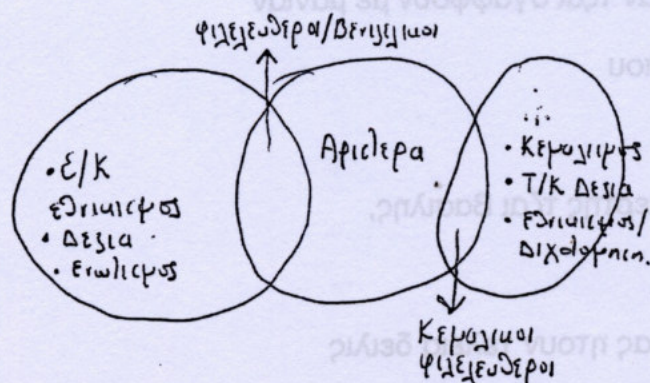 φιλελευθεροι/Βενιζελικοι
• Ε/Κ
εθνικισμος
• Δεξια
• Ενωτισμος
Αριστερα
• Κεμαλισμος
• Τ/Κ Δεξια
• Εθνικισμος/
Διχοτομηση.
Κεμαλικοι
φιλελευθεροι